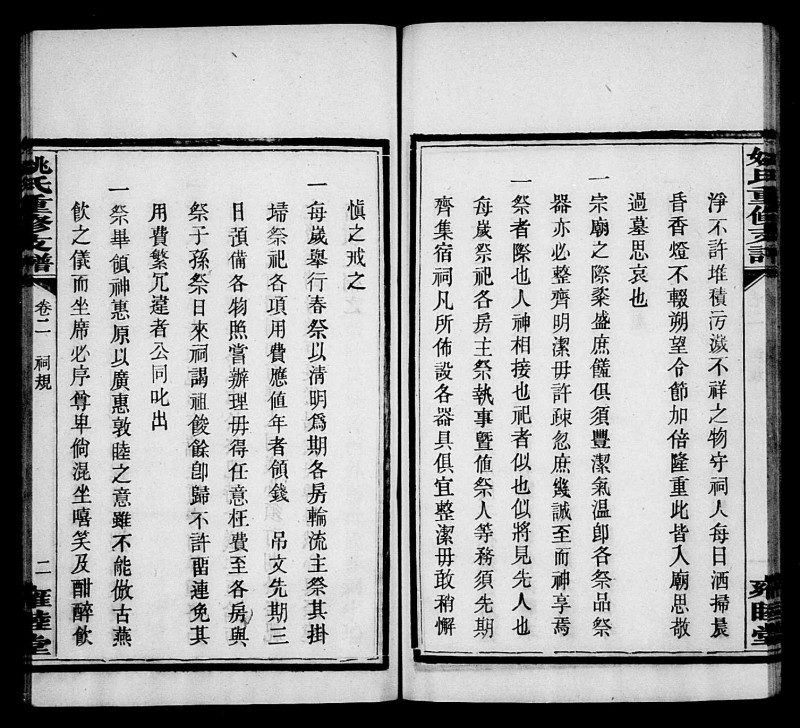 姚氏重修支譜
雍睦堂
淨不許堆積污濊不祥之物守祠人每日洒掃晨
昏香燈不輟朔望令節加倍隆重此皆入廟思敬
過墓思哀也
一宗廟之際粢盛庶饈俱須豐潔氣温卽各祭品祭
器亦必整齊明潔毋許疎忽庶幾誠至而神享焉
一祭者際也人神相接也祀者似也似將見先人也
每歲祭祀各房主祭執事曁值祭人等務須先期
齊集宿祠凡所佈設各器具俱宜整潔毋敢稍懈
愼之戒之
一每歲舉行春祭以清明爲期各房輪流主祭其掛
埽祭祀各項用費應值年者領錢 吊文先期三
日預備各物照嘗辦理毋得任意枉費至各房與
祭子孫祭日來祠謁祖餕餘卽歸不許畱連免其
用費繁冗違者公同叱出
一祭畢領神惠原以廣惠敦睦之意雖不能倣古燕
飮之儀而坐席必序尊卑倘混坐嘻笑及酣醉飮
姚氏重修支譜
卷二
祠規
二
雍睦堂